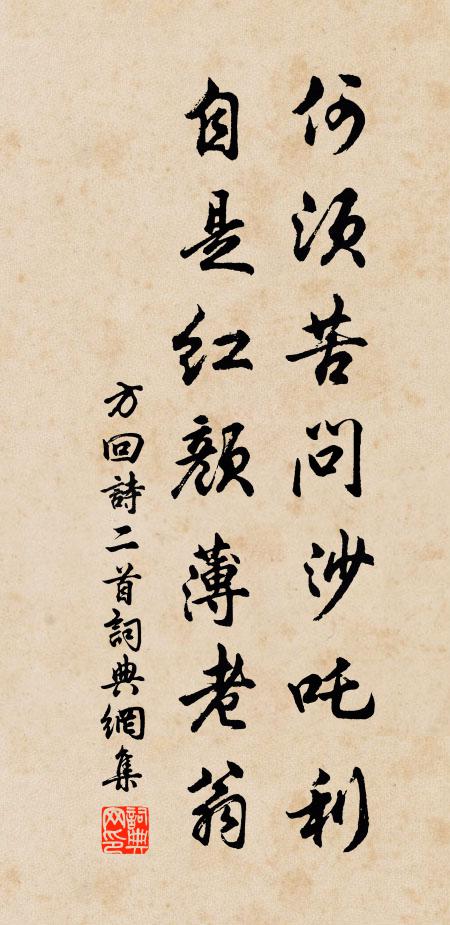 何須苦問沙吒利
自是紅顏薄老翁
方回詩二首詞典網集
詞典网印